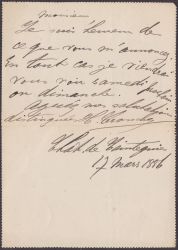 Monsieur
Je suis heureux de
ce que vous m'annoncez
En tout cas je viendrai
vous voir samedi prochain
ou dimanche.
Agréez nos salutations
distinguées
Chât. de
17 Mars 1886